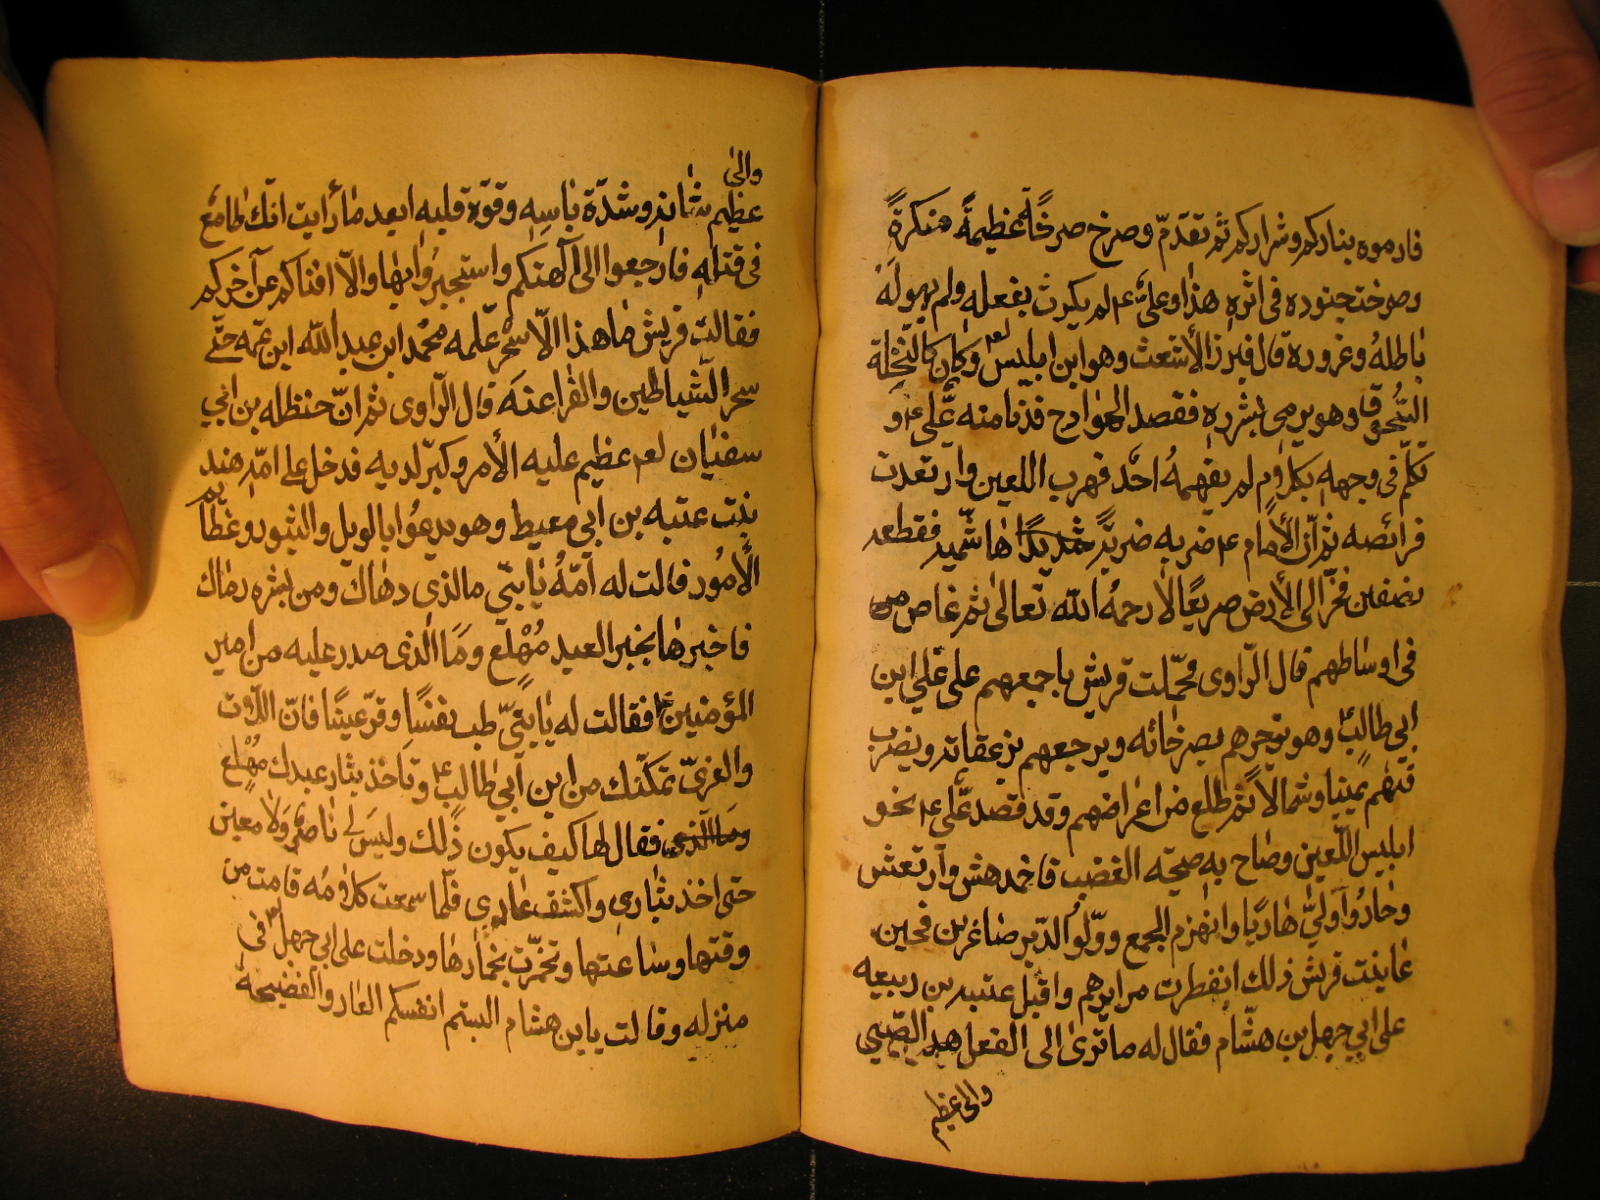 فارموه بناركم وشراركم ثم تقدّم وصرخ صرخًا عظيمةً منكرةً
وصرخت جنوده في اثره هذا وعليّ ع لم يكرث بفعله ولم يهوله
باطلهُ وغروره قال فبرز الأشعث وهو ابن ابليس لع وكان كالنّخلة
السّحوق وهو يرمي بشرره فقصد الهوادج فدنا منه عليّ ع و
تكلّم في وجهه بكلام لم يفهمهُ احد فهرب اللعين وارتعدت
فرائصه ثمّ انّ الأمام ع ضربه ضربةً شديدًا هاشميه فقطعه
نصفين فخرّ الى الأرض صريعًا لا رحمهُ الله تعالى ثم غاص من
في اوساطهم قال الرّاوى فحملت قريش باجمعهم على علي ابن
ابي طالب ع وهو يزجرهم بصرخاته ويرجعهم بزعقاته ويضرب
فيهم يمينا وشمالاً ثم طلع من اعراضهم وقد قصد عليّ ع نحو
ابليس اللّعين وصاح به صيحة الغضب فاخمدهش وارتعش
وحاروا وليّ هاربًا وانهزم الجمع وولّوا الدّبر صاغرين فحين
عاينت قريش ذلك انفطرت مرايرهم واقبل عتبه بن ربيعه
على ابي جهل بن هشام فقال له ما ترىٰ الى الفعل هذا الصّبي
والى عظيم
والىٰ
عظيم شانه وشدّة باسه وقوّة قلبه ابعد ما رأيت انك لطامع
في قتله فارجعوا الى آلهتكم واستجيروا بها والّا افناكم عن آخركم
فقالت قريش ما هذا الّا سحر علّمه محمد ابن عبد الله ابن عمّه حتّى
سحر الشّياطين والفراعنه قال الرّاوى ثم انّ حنظله بن ابي
سفيان لع عظيم عليه الأمر وكبر لديه فدخل على امّه هند
بنت عتبه بن ابي معيط وهو يدعوا بالويل والثبور وعظايم
الأمُور فقالت له امّهُ يا بنّي ما لذى دهاك ومن بشره رماك
فاخبرها بخبر العبيد مُهْلع ومَا الّذى صدر عليه من امير
المؤمنين ع فقالت له يا بنيّ طب نفسًا وقرّ عينًا فانّ اللّات
والعزىّ تمكّنك من ابن ابي طالب ع وتاخذ بثار عبدك مهْلع
وما الّذى فقال لها كيف يكون ذٰلك وليس لي ناصرٌ ولا معين
حتى اخذ بثاري واكشف عاري فلّما سمعت كلامه قامت من
وقتها وساعتها وتخمّرت بخمارها ودخلت على ابي جهل لع في
منزله وقالت يا بن هشام البستم انفسكم العار والفضيحة